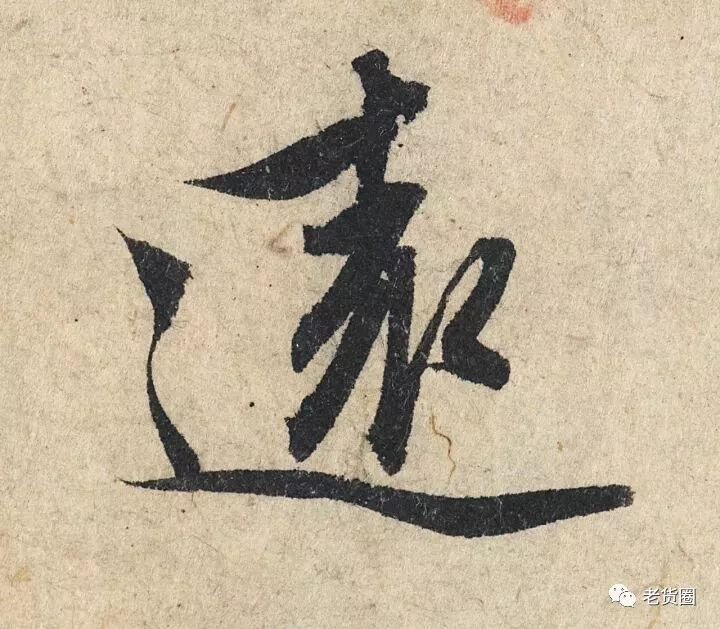 遠
老货圈